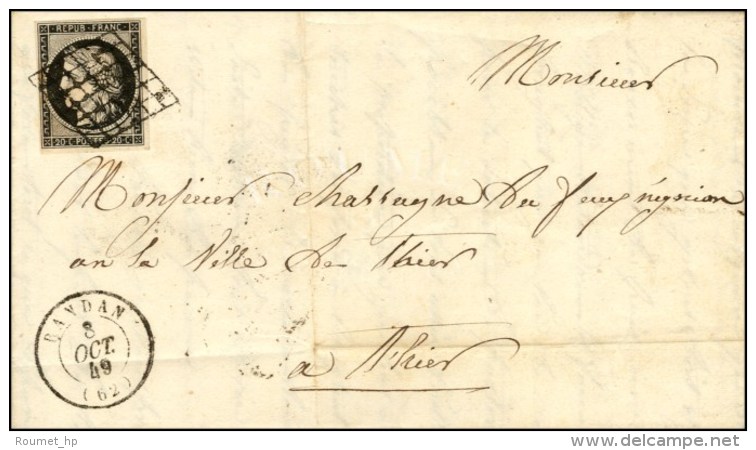 REPUB. FRANC.
20 C POSTES 20 C
Monsieur
Monsieur Chassaigne Du
en la Ville De Thier
a Thier
RANDAN
8
OCT.
49
(62)
Roumet_hp
©delcampe.net